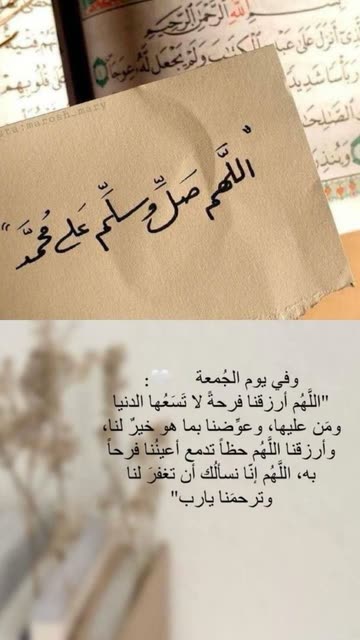 الله الرحمن الرحيم
ـذي أنزل على عبده الكتاب ولم يجعل له عوجا
marosh_mary
"اللَّهم صَلِّ وسلِّم عَلى مُحمَّد"
وفي يوم الجُمعة 🤍:
"اللَّهُم أرزقنا فرحةً لا تَسَعُها الدنيا
ومَن عليها، وعوِّضنا بما هو خيرٌ لنا،
وأرزقنا اللَّهُم حظاً تدمع أعينُنا فرحاً
به، اللَّهُم إنّا نسألُك أن تغفرَ لنا
وترحمَنا يارب"